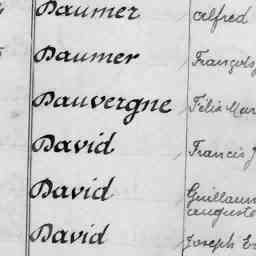 Daumer Alfred
Daumer François
Dauvergne Félix Mar
David Francis J
David Guillaum
Auguste
David Joseph